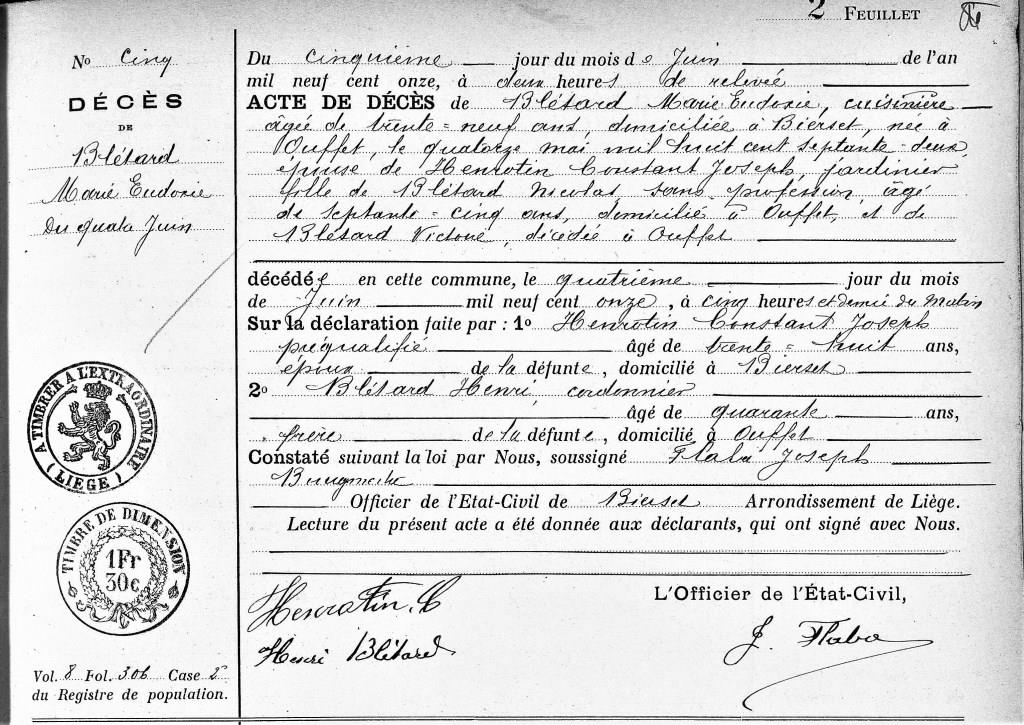 2 FEUILLET
No Cinq
DÉCÈS
DE
Blétard
Marie Eudoxie
Du quatre Juin
A TIMBRER A L'EXTRAORDINAIRE
(LIEGE)
TIMBRE DE DIMENSION
1Fr
30c
Vol. 8 Fol. 306 Case 2
du Registre de population.
Du cinquième jour du mois de Juin de l'an
mil neuf cent onze, à deux heures de relevée
ACTE DE DÉCÈS de Blétard Marie Eudoxie, cuisinière
âgée de trente=neuf ans, domiciliée à Bierset, née à
Ouffet, le quatorze mai mil huit cent septante-deux,
épouse de Henrotin Constant Joseph, jardinier
fille de Blétard Nicolas, sans profession, âgé
de septante=cinq ans, domicilié à Ouffet, et de
Blétard Victoire, décédée à Ouffet
décédée en cette commune, le quatrième jour du mois
de Juin mil neuf cent onze, à cinq heures et demie du matin
Sur la déclaration faite par : 1o Henrotin Constant Joseph
préqualifié âgé de trente=huit ans,
époux de la défunte, domicilié à Bierset
2o Blétard Henri, cordonnier
âgé de quarante ans,
frère de la défunte, domicilié à Ouffet
Constaté suivant la loi par Nous, soussigné Flaba Joseph
Bourgmestre
Officier de l'Etat-Civil de Bierset Arrondissement de Liège.
Lecture du présent acte a été donnée aux déclarants, qui ont signé avec Nous.
Henrotin. C
Henri Blétard
L'Officier de l'État-Civil,
J. Flaba